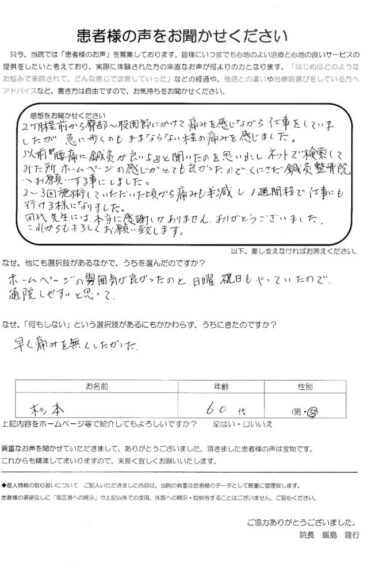 患者様の声をお聞かせください
只今、当院では「患者様のお声」を募集しております。皆様にいつまでも心地のよい治療と心地の良いサービスの
提供をしたいと考えており、実際に体験された方の率直なお声が何よりの力となります。「はじめはどのような
お悩みで来院されて、どんな感じで改善していった」などの経過や、他店との違いや治療院選びをしている方へ
アドバイスなど、書き方は自由ですので、お気持ちをお聞かせください。
感想をお聞かせください
2ヶ月程前から臀部〜股関節にかけて痛みを感じながら仕事をしていま
したが 急に歩くのもままならない程の痛みを感じました。
以前 腰痛に鍼灸が良いよと聞いたのを思い出し ネットで検索して
みた所 ホームページの感じがとても良かったので くにさだ鍼灸整骨院
へお願いする事にしました。
2〜3回施術していただいた頃から痛みも半減し 1週間程で仕事にも
行ける様になりました。
先生には本当に感謝しかありません ありがとうございました
これからもよろしくお願い致します。
以下、差し支えなければお答えください。
なぜ、他にも選択肢があるなかで、うちを選んだのですか?
ホームページの雰囲気が良かったのと 日曜 祝日もやっていたので、
通院しやすいと思って、
なぜ、「何もしない」という選択肢があるにもかかわらず、うちにきたのですか?
早く痛みを無くしたかった
お名前 年齢 性別
杉本 60代 (男・女)
上記内容をホームページ等で紹介してもよろしいですか? はい・□いいえ
貴重なお声を聞かせていただきまして、ありがとうございました。頂きました患者様の声は宝物です。
これからも精進してまいりますので、末長く宜しくお願いいたします。
◆個人情報の取り扱いについて ご記入いただきました内容は、当院の貴重な患者様のデータとして厳重に管理致します。
患者様の承諾なしに「第三者への開示」や上記以外での使用、外部への開示・提供等することはございません。ご安心ください。
ご協力ありがとうございました。
院長 飯島 隆行